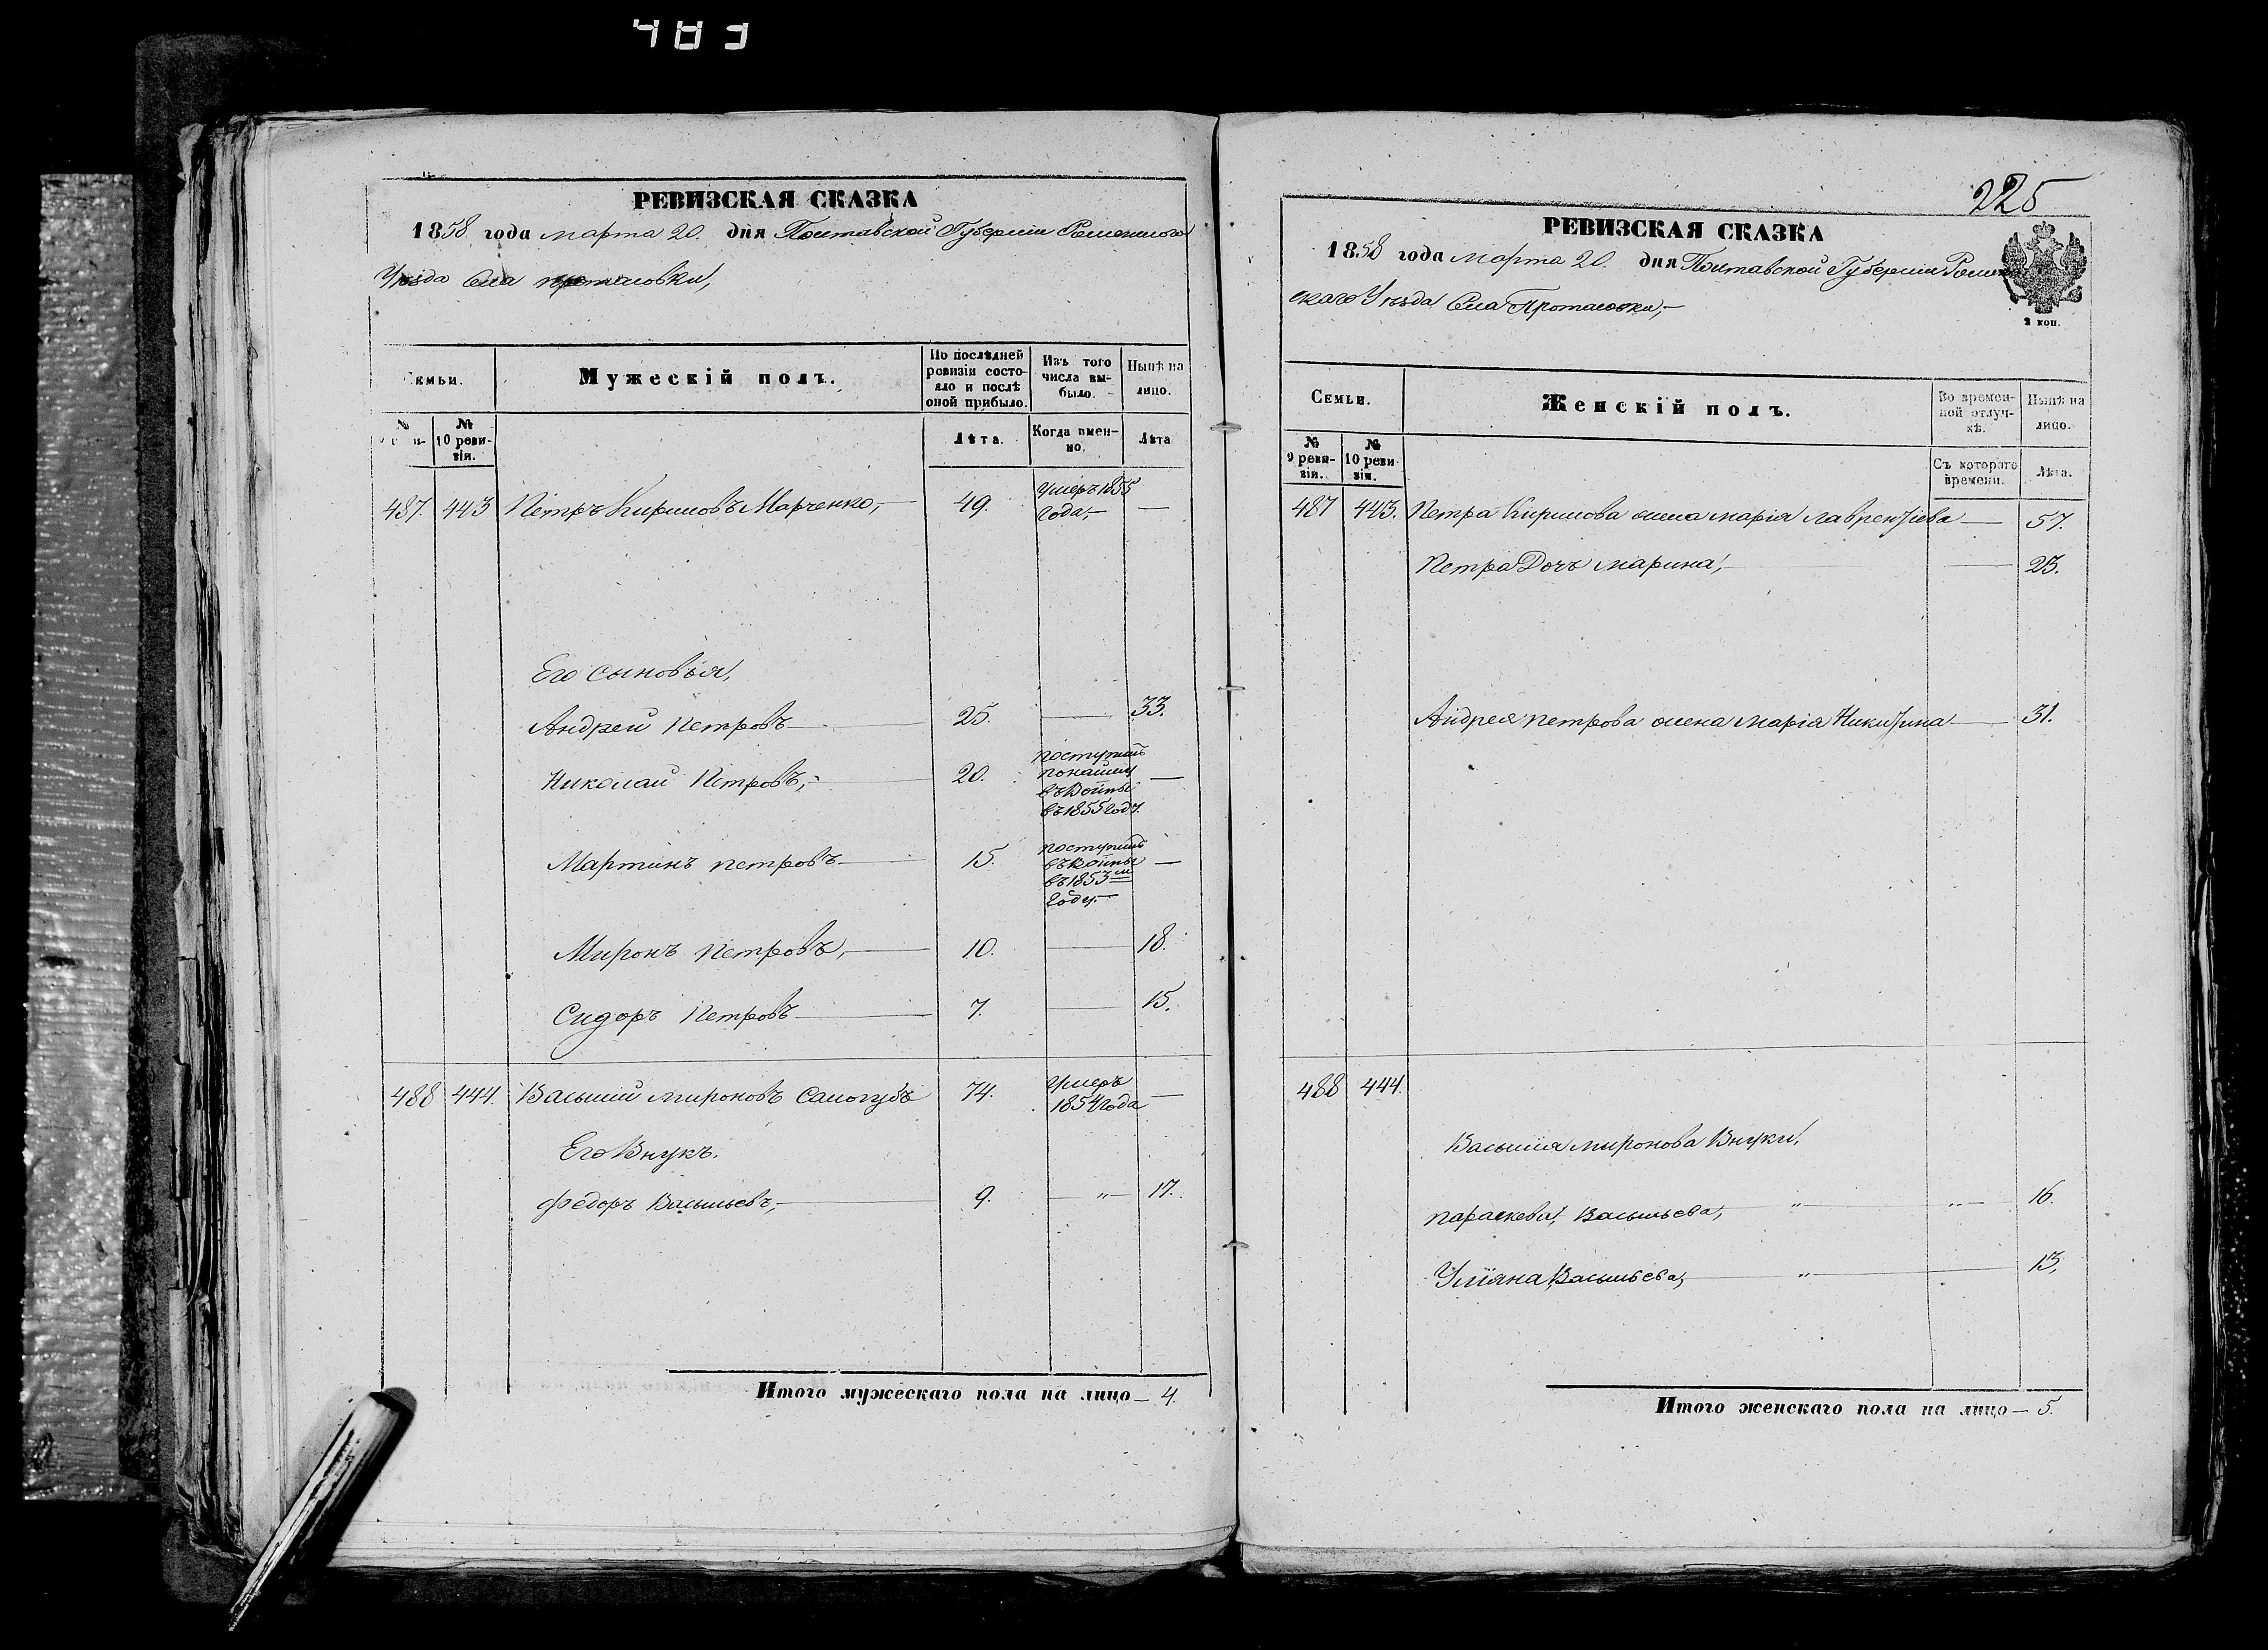 483
РЕВИЗСКАЯ СКАЗКА
1858 года марта 20. дня Полтавской Губернiи Роменского
Уѣзда Села Протасовки,
Семьи.
Мужескiй полъ.
По послѣдней ревизiи состояло и послѣ оной прибыло.
Изъ того числа выбыло.
Нынѣ на лицо.
№
№ 10 ревизiи.
Лѣта.
Когда именно.
Лѣта
487. 443 Петръ Кириловъ Марченко, 49. умеръ 1855 года, —
Его сыновья,
Андрей Петровъ 25. — 33.
Николай Петровъ, 20. поступилъ въ 1855 году. —
Мартинъ Петровъ 15. поступилъ въ 1853м году. —
Миронъ Петровъ, 10. — 18.
Сидоръ Петровъ 7. — 15.
488 444. Василий Мироновъ Самогубъ 74. умеръ 1854 года —
Его Внукъ.
Федоръ Васильевъ, 9. — „ — 17.
Итого мужескаго пола на лицо — 4.
225
РЕВИЗСКАЯ СКАЗКА
1858 года марта 20. дня Полтавской Губернiи Ромен
скаго Уѣзда Села Протасовки,
2 коп.
Семьи.
Женскiй полъ.
Во временной отлучкѣ.
Нынѣ на лицо.
№ 9 ревизiи.
№ 10 ревизiи.
Съ котораго времени.
Лѣта.
487 443. Петра Кирилова жена Марiя Лаврентiева — 57.
Петра Дочь Марина, — 23.
Андрея Петрова жена Марiя Никитина — 31.
488 444.
Василия Миронова Внуки,
Параскевия, Васильева, „ „ — 16.
Улiяна Васильева, „ — 13,
Итого женскаго пола на лицо — 5.